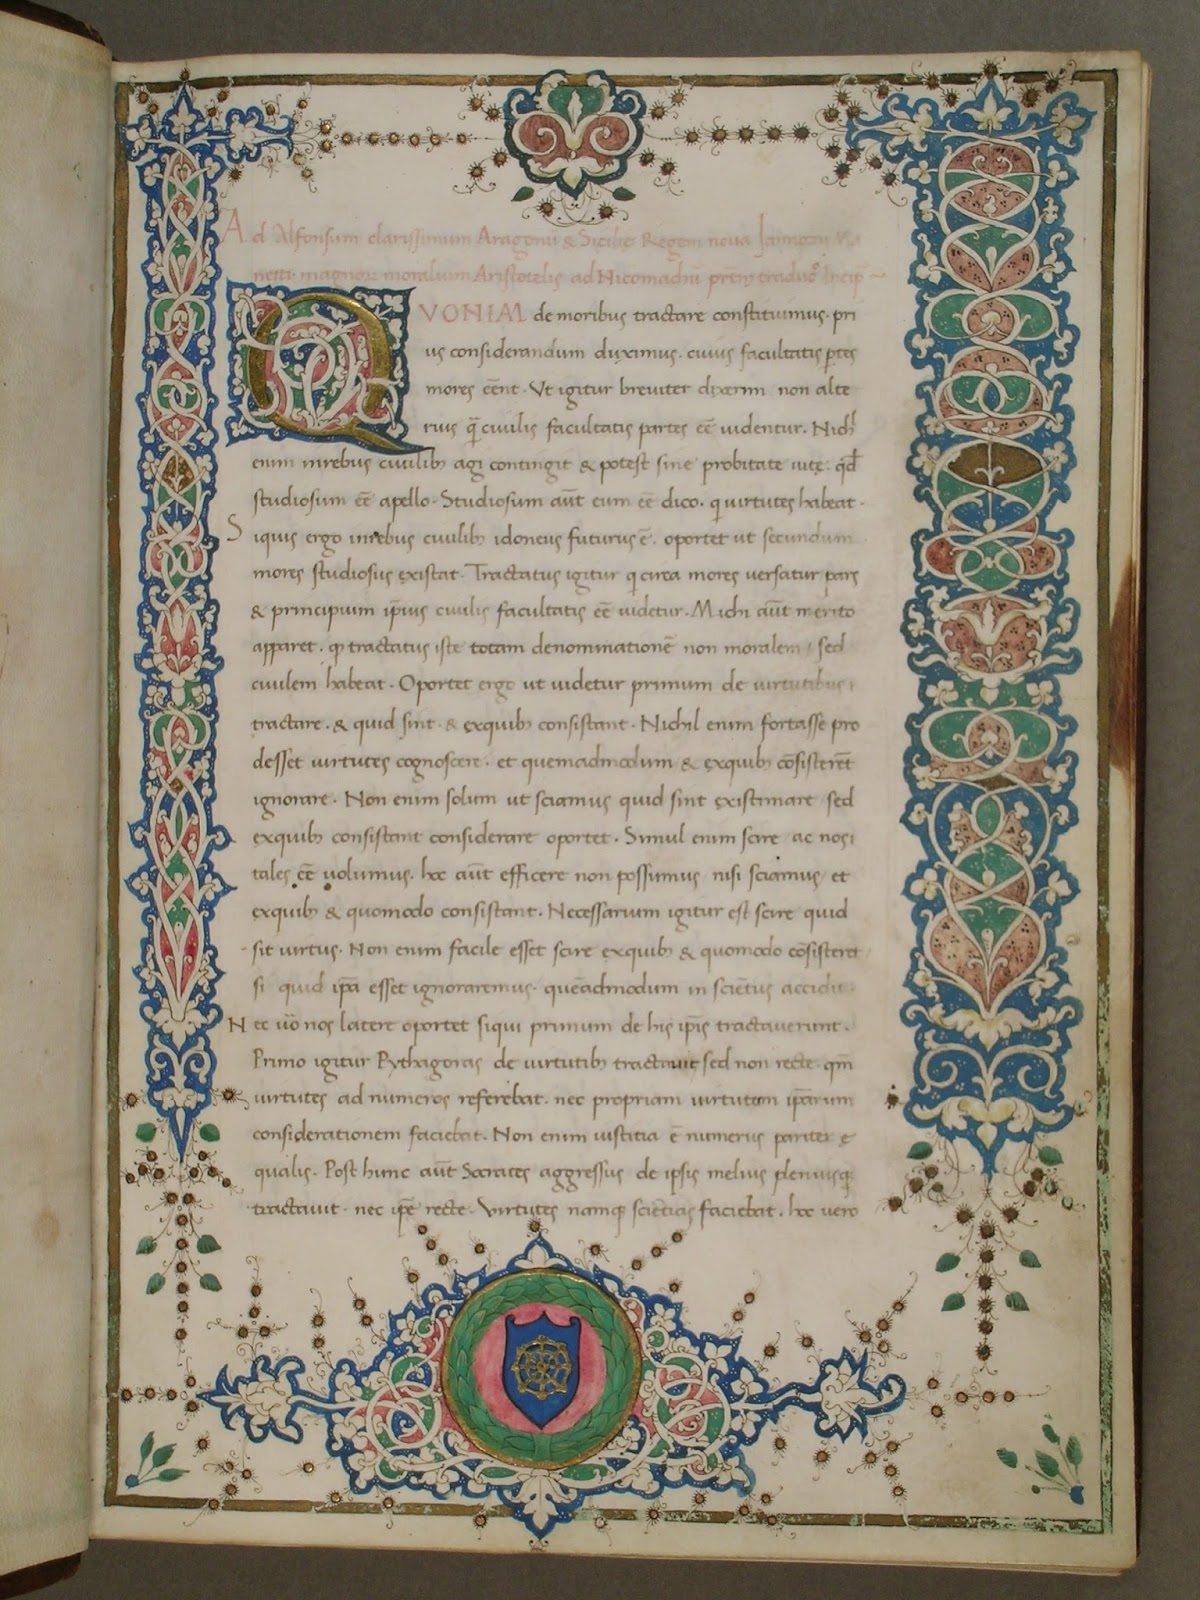 Ad Alfonsum clarissimum Aragonū & Sicilię Regem noua Iannozii Ma
netti magnorꝝ moralium Aristotelis ad Nicomachū prem̄ traduc̊ Incip̄
QVONIAM de moribus tractare constituimus. pri
us considerandum duximus. cuius facultatis ꝑtes
mores eēnt. Vt igitur breuiter dixerim non alte
rius q̄ ciuilis facultatis partes eē uidentur. Nich̄
enim inrebus ciuilibꝫ agi contingit & potest sine probitate uitę. qd̄
studiosum eē apello. Studiosum aūt eum eē dico. qui uirtutes habeat.
Siquis ergo inrebus ciuilibꝫ idoneus futurus ē. oportet ut secundum
mores studiosus existat. Tractatus igitur q̄ circa mores uersatur pars
& principium ip̄ius ciuilis facultatis eē uidetur. Michi aūt merito
apparet. ꝙ tractatus iste totam denominationē non moralem / sed
ciuilem habeat. Oportet ergo ut uidetur primum de uirtutibus
tractare. & quid sint. & exquibꝫ consistant. Nichil enim fortasse pro
desset uirtutes cognoscere. et quemadmodum & exquibꝫ cōsisterēt
ignorare. Non enim solum ut sciamus quid sint existimare sed
exquibꝫ consistant considerare oportet. Simul enim scire ac nosi
tales eē uolumus. hoc aūt efficere non possumus nisi sciamus et
exquibꝫ & quomodo consistant. Necessarium igitur est scire quid
sit uirtus. Non enim facile esset scire exquibꝫ & quomodo cōsisteret
si quid ip̄a esset ignoraremus. queādmodum in sciētiis accidit.
Nec uō nos latere oportet siqui primum de his ip̄is tractauerunt.
Primo igitur Pythagoras de uirtutibꝫ tractauit sed non recte. qm̄
uirtutes ad numeros referebat. nec propriam uirtutum ip̄arum
considerationem faciebat. Non enim iustitia ē numerus pariter ę
qualis. Post hunc aūt Socrates aggressus de ipsis melius pleniusqꝫ
tractauit. nec ip̄e recte. Virtutes namqꝫ sciētias faciebat. hoc uero